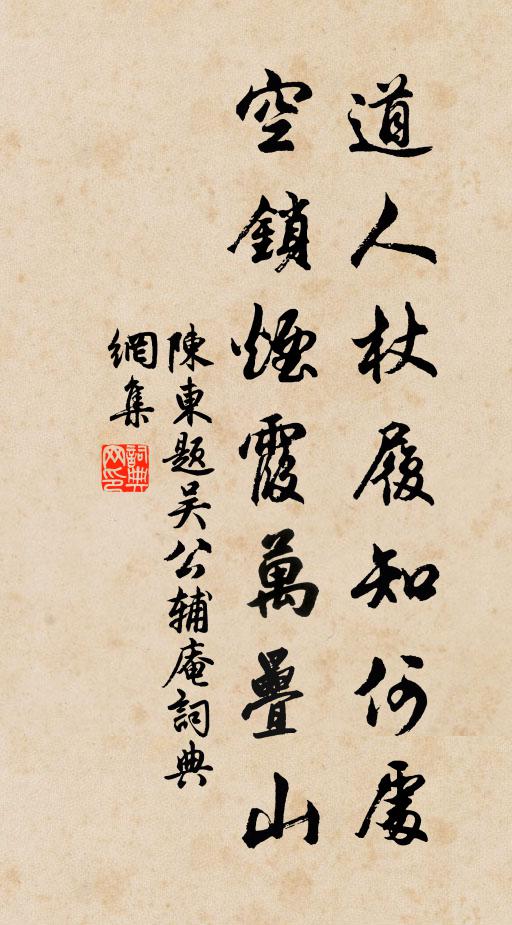 道人杖履知何處
空鎖煙霞萬疊山
陳東題吴公辅庵詞典
網集
詞典
网印